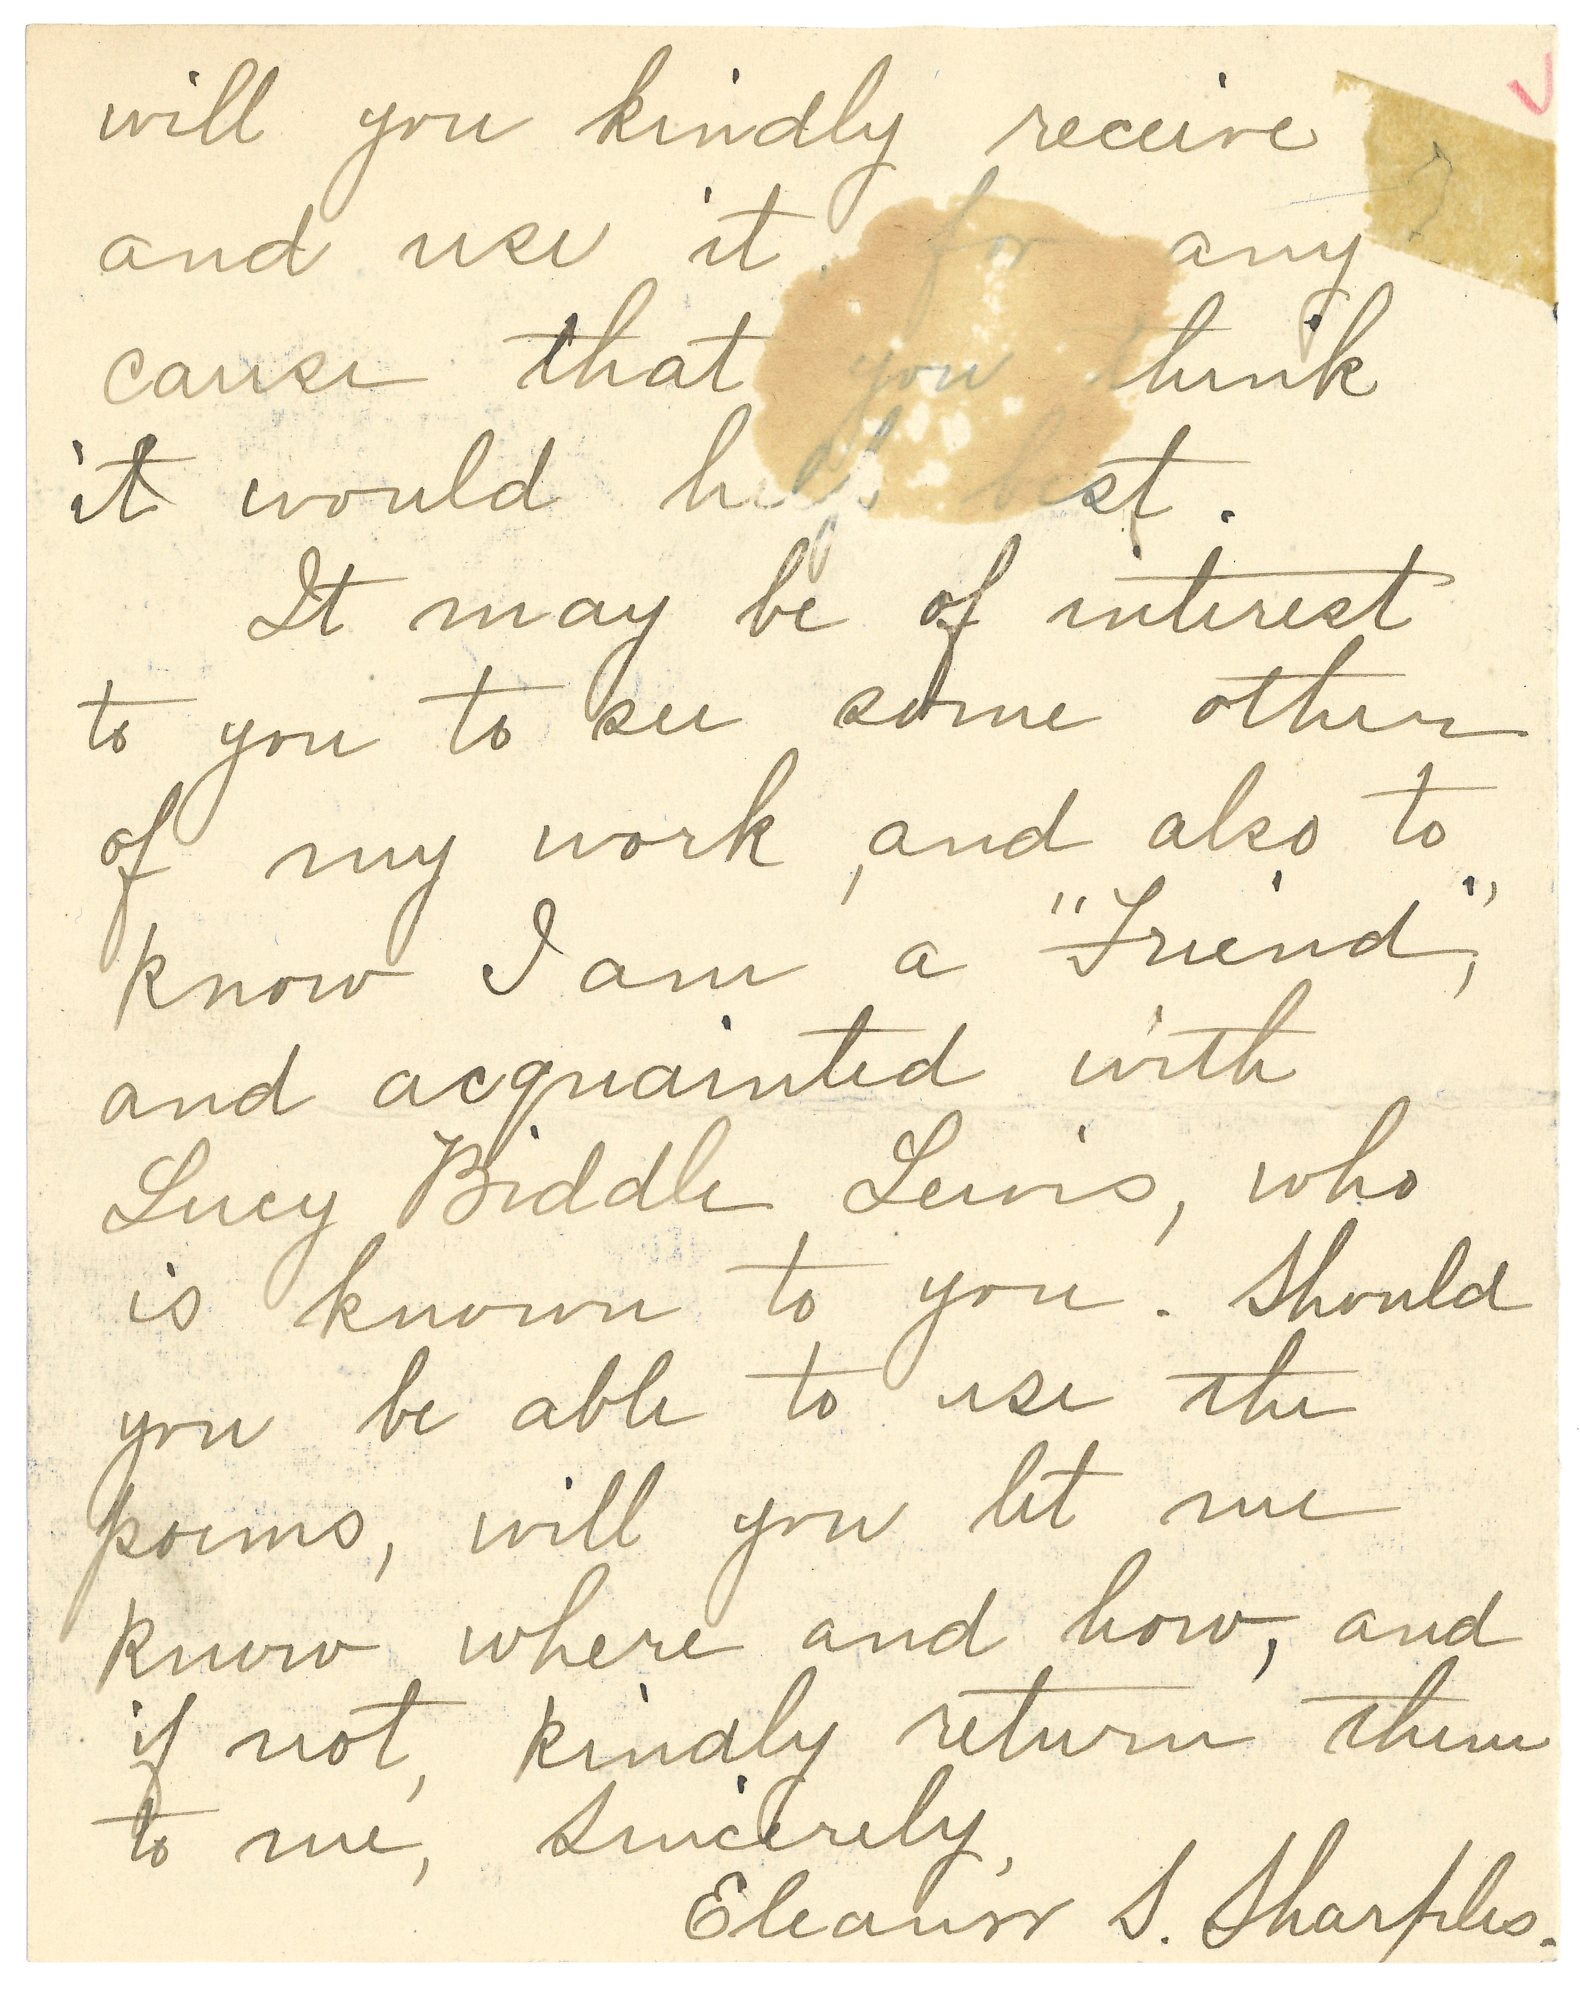 will you kindly receive
and use it for any
cause that you think
it would help best.
It may be of interest
to you to see some other
of my work, and also to
know I am a "Friend",
and acquainted with
Lucy Biddle Lewis, who
is known to you. Should
you be able to use the
poems, will you let me
know where and how, and
if not, kindly return them
to me, Sincerely,
Eleanor S. Sharples.